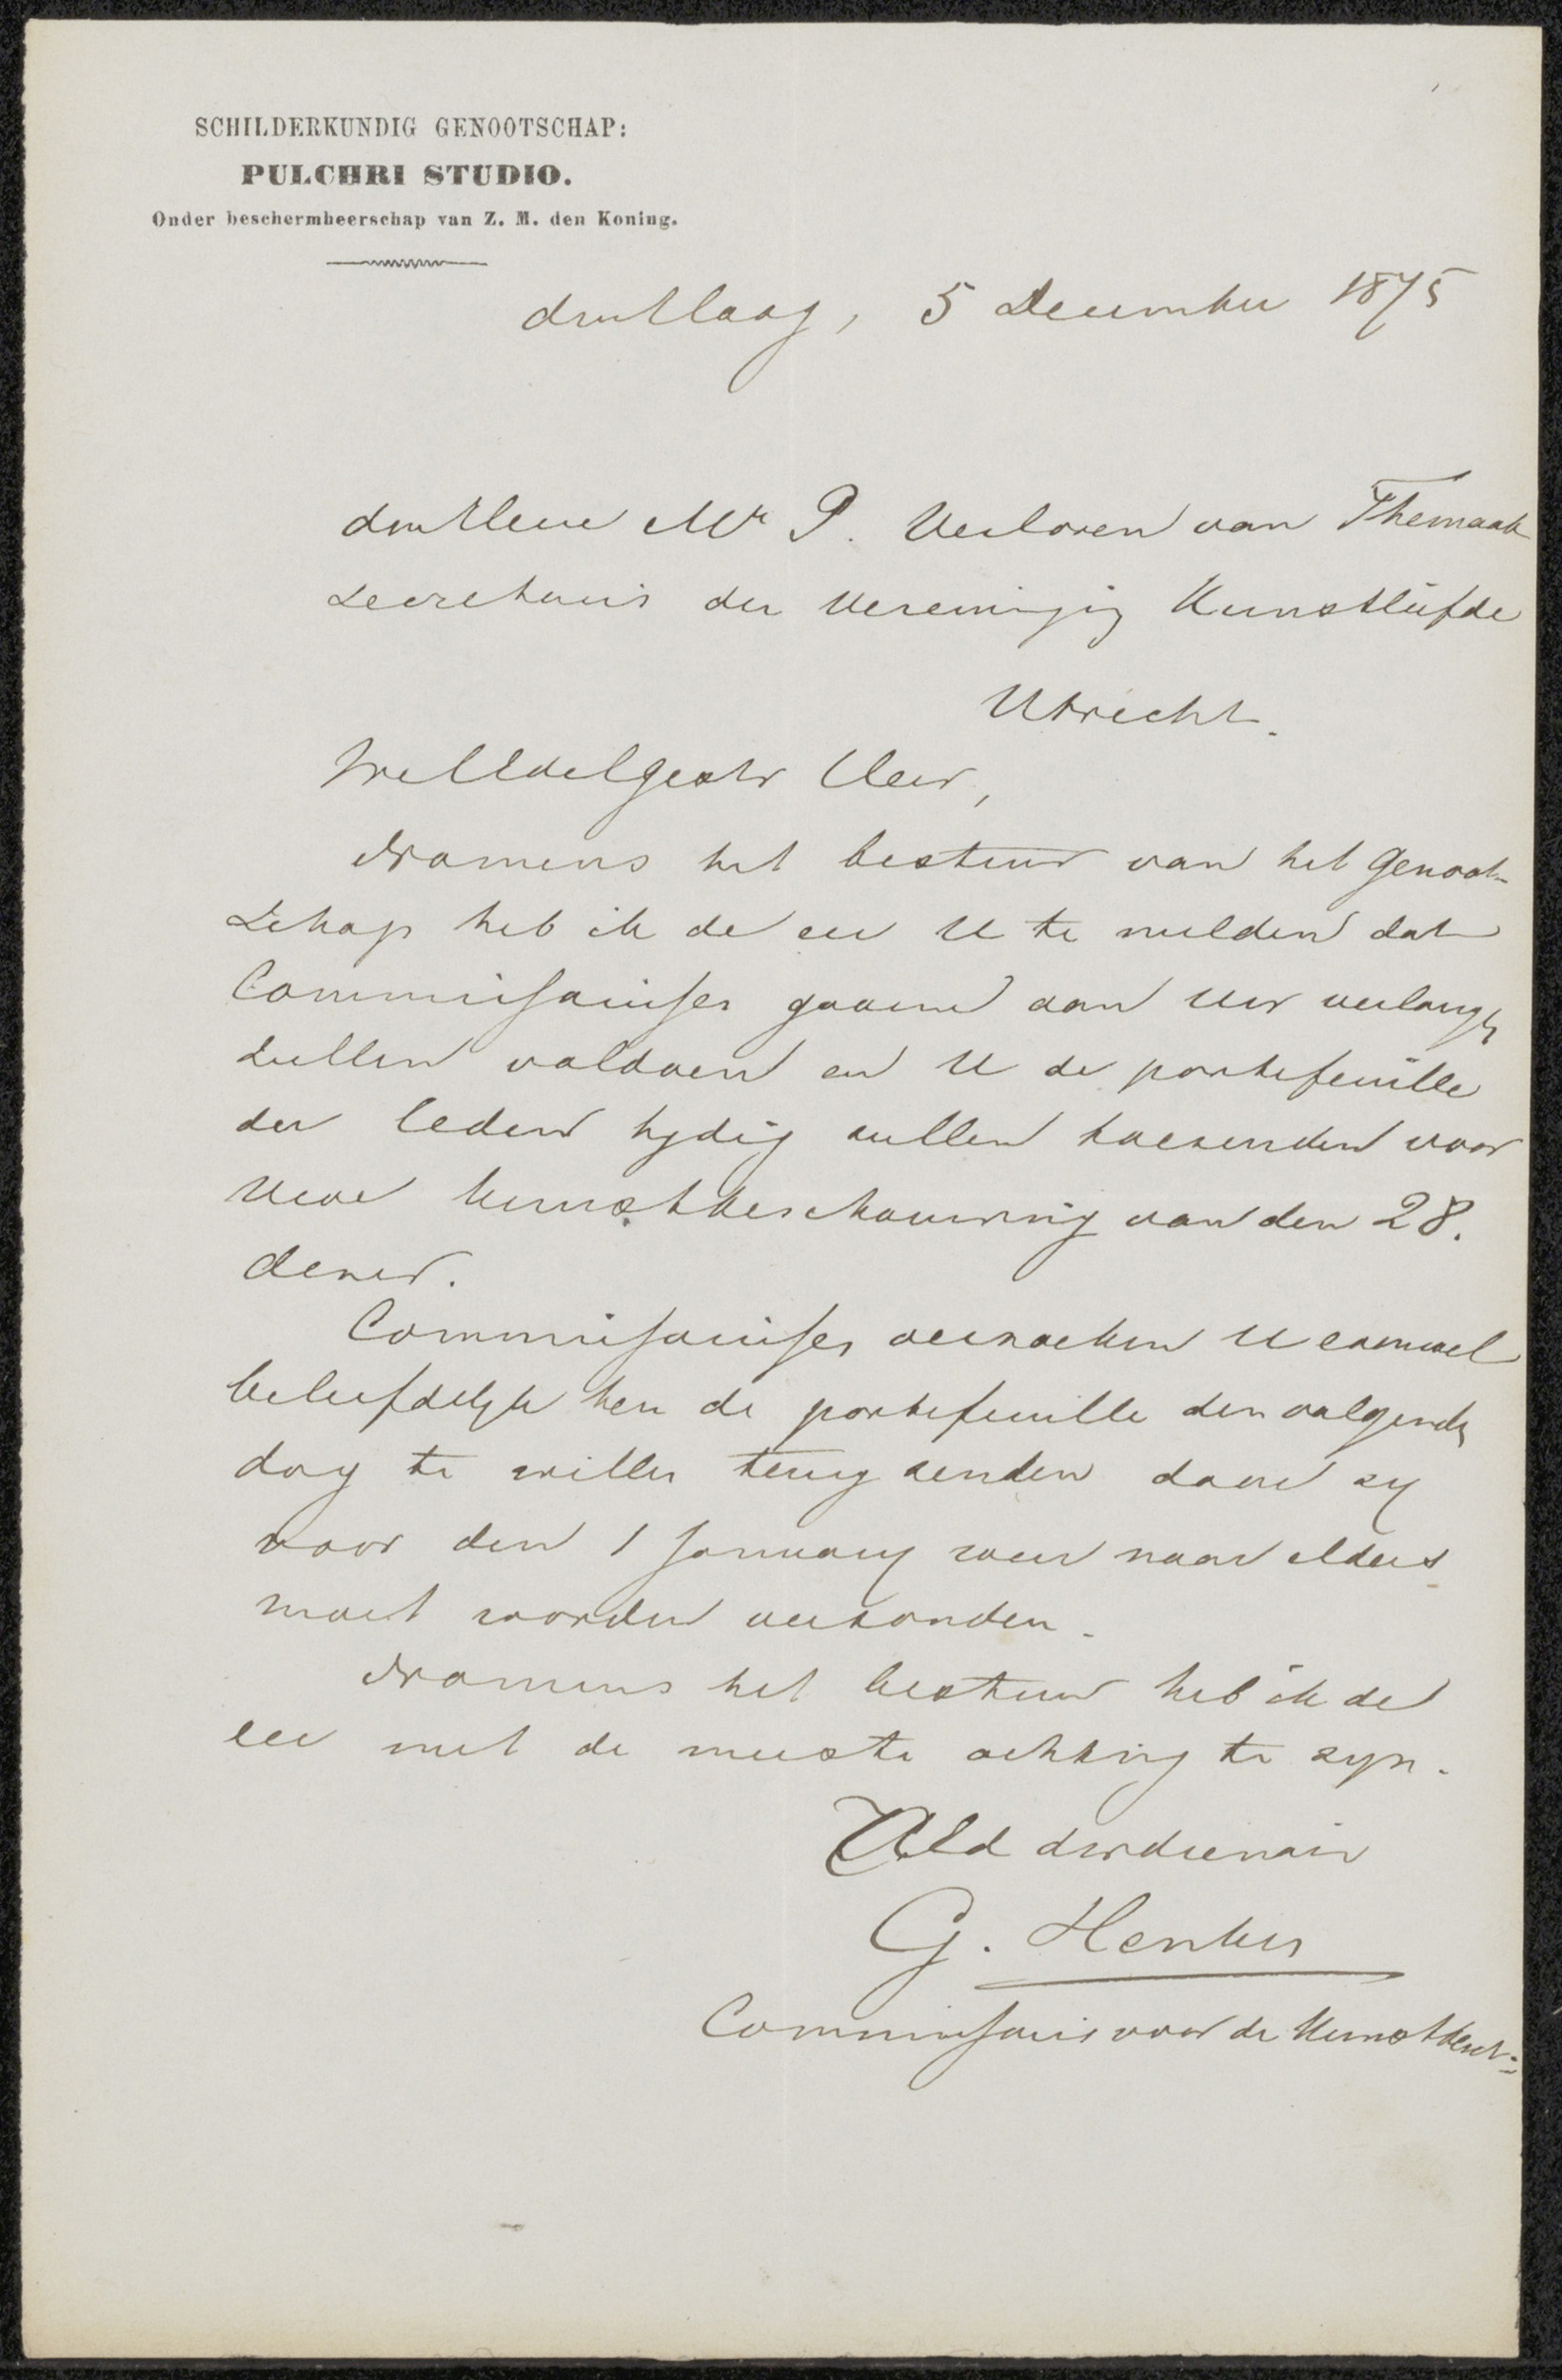 SCHILDERKUNDIG GENOOTSCHAP:
PULCHRI STUDIO.
Onder beschermheerschap van Z. M. den Koning.
den Haag, 5 December 1875
den Heere Mr P. Verloren van Themaat
Secretaris der Vereeniging Kunstliefde
Utrecht.
WelEdelGestr Heer,
Namens het bestuur van het Genoot-
schap heb ik de eer U te melden dat
Commissarissen gaarne aan Uw verlangen
zullen voldoen en U de portefeuille
der leden tydig zullen toezenden voor
Uwe kunstbeschouwing van den 28.
dezer.
Commissarissen verzoeken U evenwel
beleefdelyk hen de portefeuille den volgenden
dag te willen terug zenden daar zy
voor den 1 January weer naar elders
moet worden verzonden.
Namens het bestuur heb ik de
eer met de meeste achting te zyn.
UEd dwdienaar
G. Henkes
Commissaris voor de Kunstbesch: